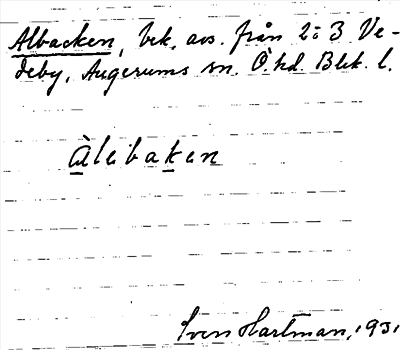 Albacken, bek. avs. från 2:3 Ve-
deby, Augerums sn. Ö hd. Blek. l.
Àlebaken
Sven Hartman, 1931